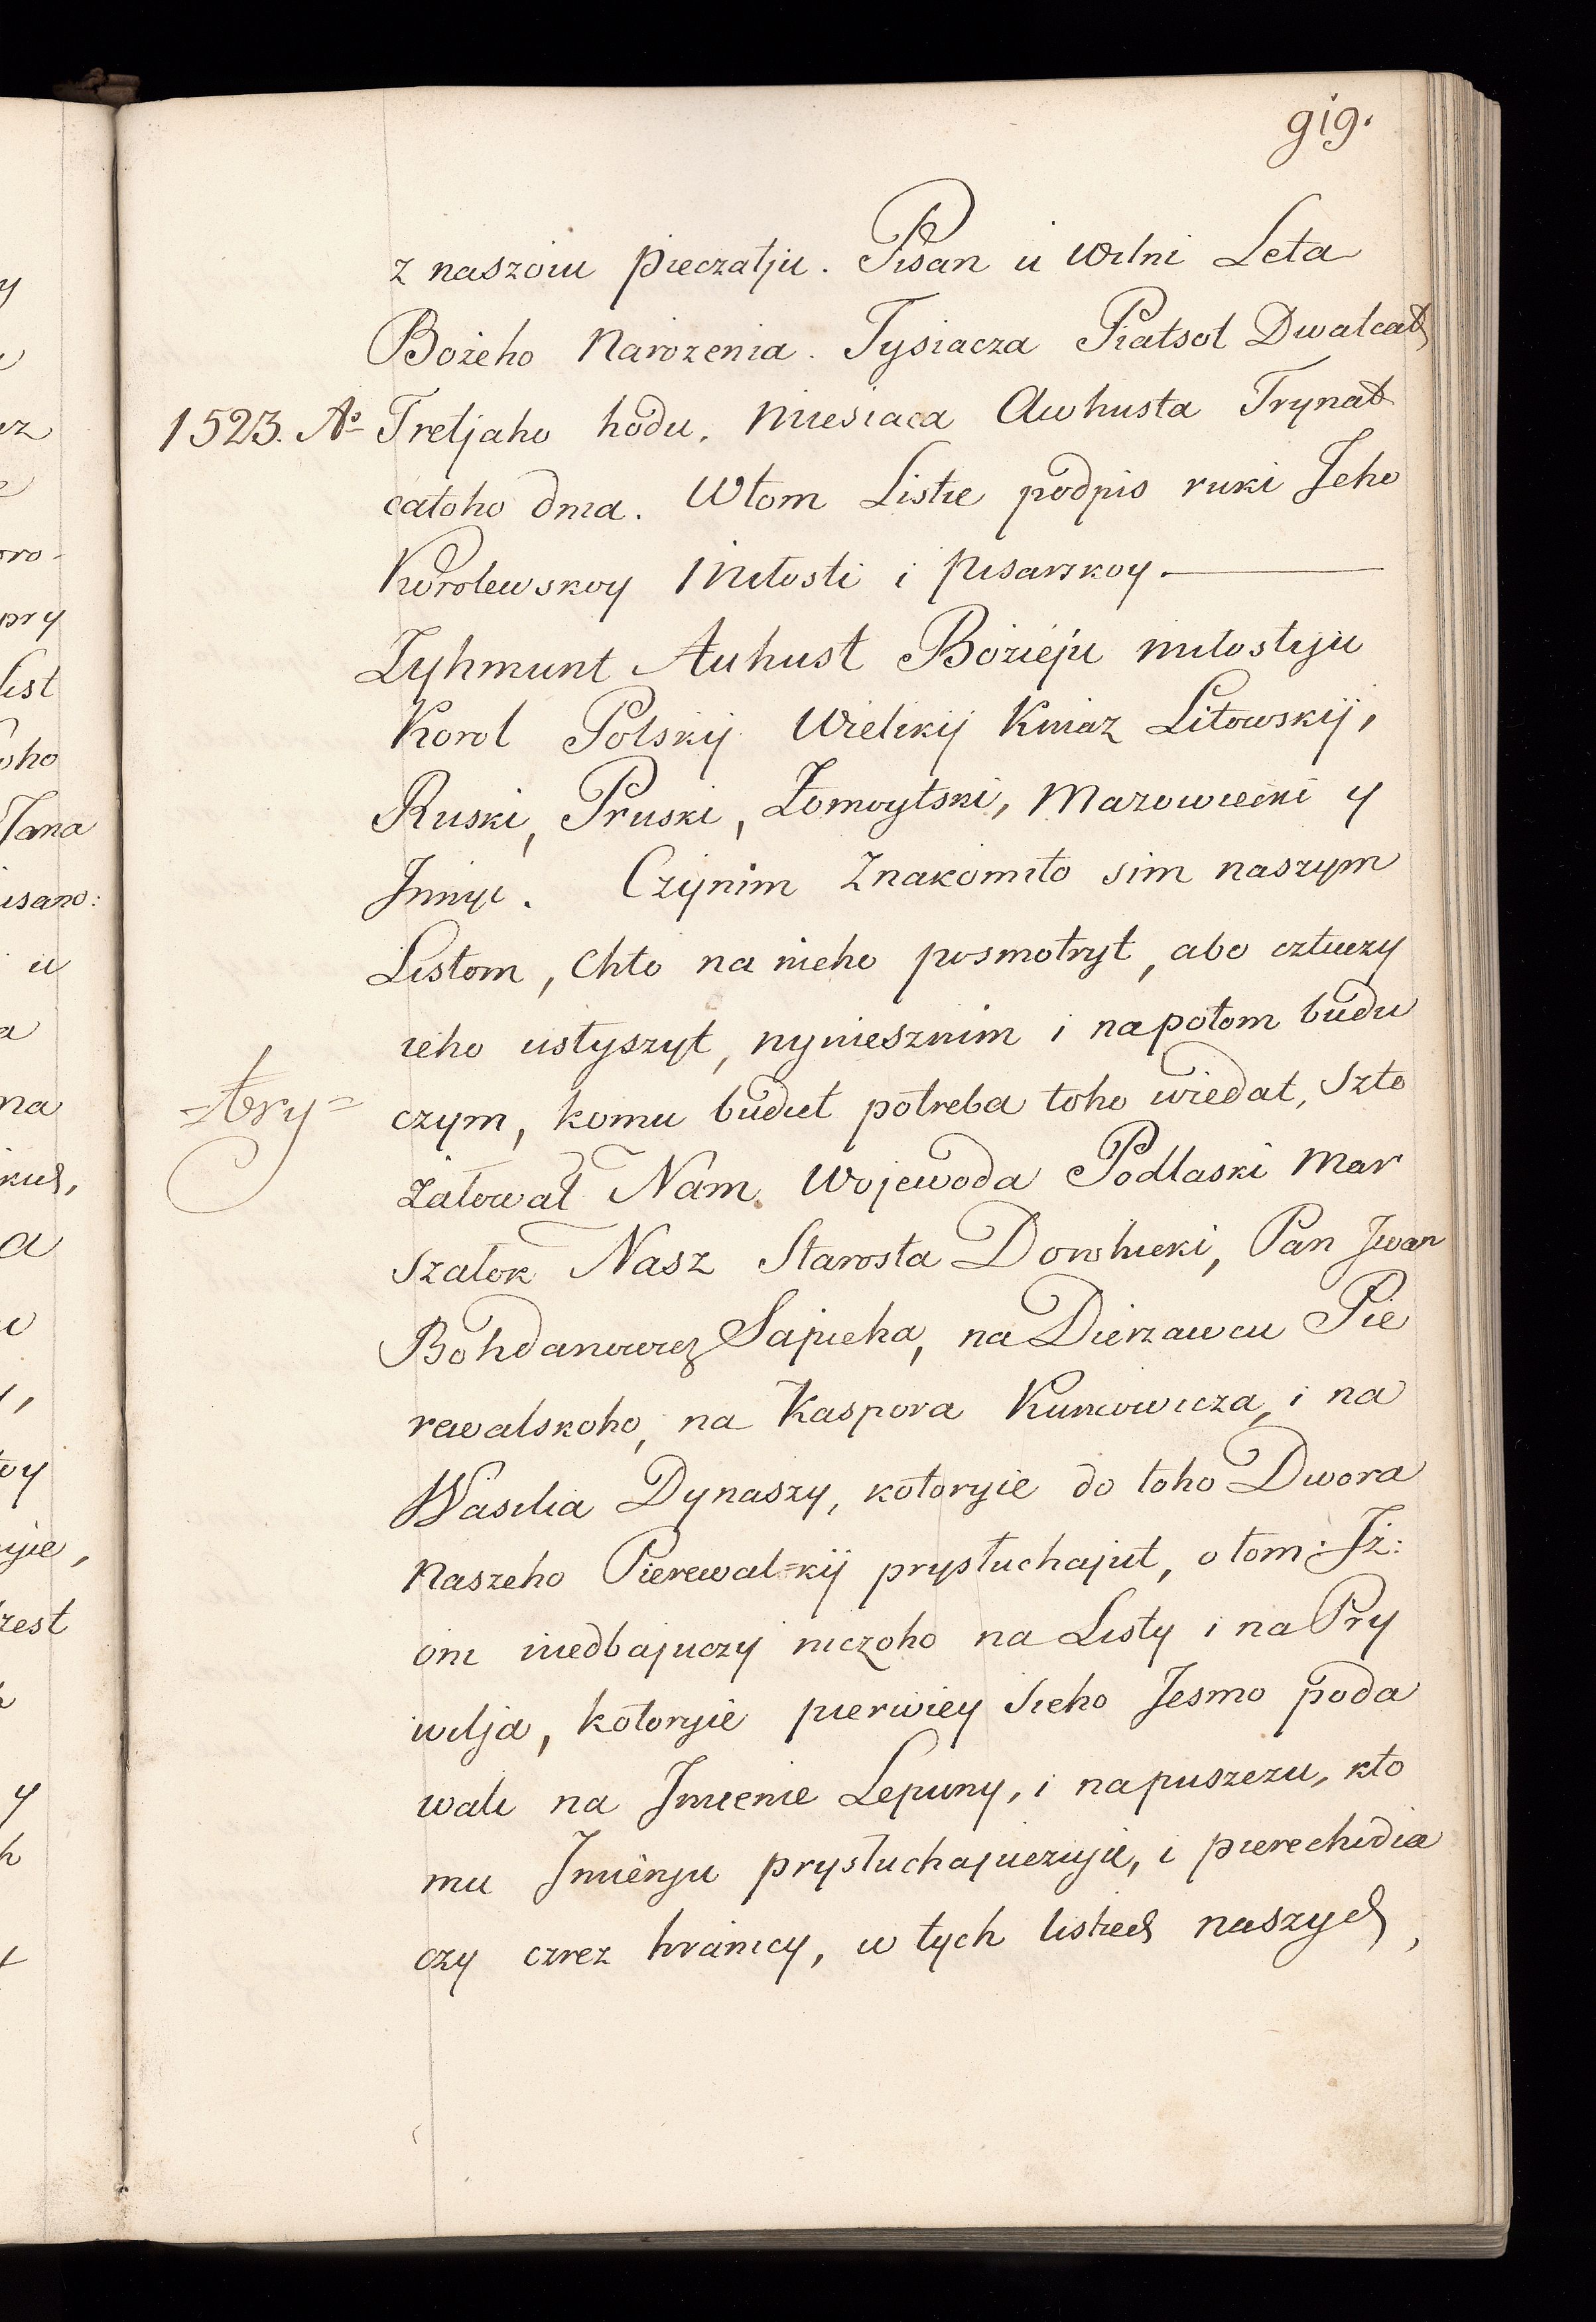 919.
z naszoiu pieczatju. Pisan u Wilni Leta
Bożeho Narozenia. Tysiacza Piatsot Dwatcat
1523. Aº Tretjaho hodu, miesiaca Awhusta Trynat
catoho dnia. W tom Listie podpis ruki Jeho
Korolewskoy Miłosti i pisarskoy.
Zyhmunt Auhust Bożieju miłostyju
Korol Polskij Wielikij Kniaz Litowskij,
Ruski, Pruski, Żomoytski, Mazowiecki y
Innyi. Czynim Znakomito sim naszym
Listom, chto na nieho posmotryt, abo cztuczy
ieho usłyszyt, nynieesznim i napotom budu
=try= czym, komu budiet potreba toho wiedat, szto
żałował Nam Wojewoda Podlaski Mar
szałok Nasz Starosta Dorohicki, Pan Iwan
Bohdanowicz Sapieha, na Dierzawcu Pie
rewalskoho, na Kaspora Kuncowicza, i na
Wasilia Dynaszy, kotoryie do toho Dwora
Naszeho Pierewalskij prysłuchajut, o tom Iż:
oni niedbajuczy niczoho na Listy i na Pry
wilja, kotoryie pierwiey sieho Jesmo poda
wali na Imienie Lepuny, i na puszczu, kto
mu Imienju prysłuchajuczuju, i pierechodia
czy czrez hranicy, w tych listiech naszych,